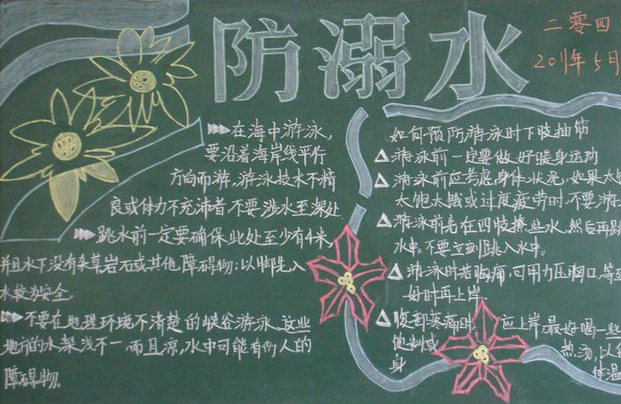 防溺水
二零四
2011年5月
在海中游泳,
要沿着海岸线平行
方向而游,游泳技术不精
良或体力不充沛者,不要涉水至深处
跳水前一定要确保此处至少有4米,
并且水下没有杂草岩石或其他障碍物;以脚先入
水较为安全
不要在地理环境不清楚的峡谷游泳,这些
地方的水深浅不一,而且凉,水中可能有伤人的
障碍物。
如何预防游泳时下肢抽筋
游泳前一定要做好暖身运动
游泳前应考虑身体状况,如果太
太饱太饿或过度疲劳时,不要游
游泳前先在四肢撩些水,然后再跳
水中。不要立刻跳入水中。
游泳时若胸痛,可用力压胸口,等
好时再上岸
腹部疼痛时 应上岸,最好喝一些
热汤,以
身 体温